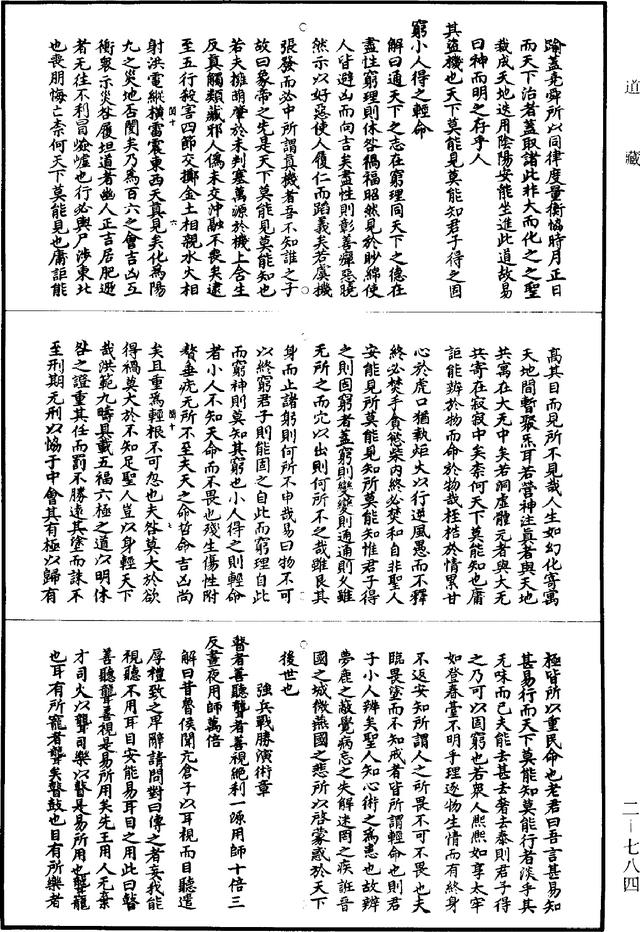 道藏
踰蓋堯舜所以同律度量衡協時月正日
而天下治者蓋取諸此非大而化之之聖
裁成天地迭用陰陽安能坐進此道故易
曰神而明之存乎人
其盜機也天下莫能見莫能知君子得之固
窮小人得之輕命
解曰通天下之志在窮理同天下之德在
盡性窮理則休咎禍福昭然見於眇綿使
人皆避凶而向吉矣盡性則彰善癉惡曉
然示以好惡使人履仁而蹈義矣若虞機
張發而必中所謂真機者吾不知誰之子
故曰象帝之先是天下莫能見莫能知也
若夫摧萌肇於未判塞萬源於機上合生
反真觸類藏邪人偽未交沖融不喪矣逮
至五行殺害四節交擲金土相親水火相
射洪電縱橫雷震東西天真見矣化為陽
九之災地否閡矣乃為百六之會吉凶互
衝衆示災咎履坦道者幽人正吉居肥遯
者无往不利冒嶮巇也行必輿尸涉東北
也喪朋悔亡奈何天下莫能見也庸詎能
高其目而見所不見哉人生如幻化寄寓
天地間暫聚炁耳若營神注真者與天地
共寓在大无中矣若洞虛體元者與大无
共寄在寂寂中矣奈何天下莫能知也庸
詎能辨於物而命於物哉桎梏於情累甘
心於虎口猶執炬火以行逆風愚而不釋
終必焚手貪慾柴內終必焚和自非聖人
安能見所莫能見知所莫能知惟君子得
之則固窮者蓋窮則變變則通通則久雖
无所之而穴以出則何所不之哉雖艮其
身而止諸躬則何所不申哉易曰物不可
以終窮君子則能固之自此而窮理自此
而窮神則莫知其窮也小人得之則輕命
者小人不知天命而不畏也殘生傷性附
贅垂疣无所不至夫天之命哲命吉凶尚
矣且重為輕根不可忽也夫咎莫大於欲
得禍莫大於不知足聖人豈以身輕天下
哉洪範九疇具載五福六極之道以明休
咎之證重其任而罰不勝遠其塗而誅不
至刑期无刑以協于中會其有極以歸有
極皆所以重民命也老君曰吾言甚易知
甚易行而天下莫能知莫能行者淡乎其
无味而已夫能去甚去奢去泰則君子得
之乃可以固窮也若衆人熙熙如享太牢
如登春臺不明乎理逐物生情而有終身
不返安知所謂人之所畏不可不畏也夫
臨畏塗而不知戒者皆所謂輕命也則君
子小人辨矣聖人知心術之為患也故辨
夢鹿之蔽覺病忘之失解迷罔之疾誑晉
國之城微燕國之悲所以啓蒙惑於天下
後世也
強兵戰勝演術章
瞽者善聽聾者善視絕利一源用師十倍三
反晝夜用師萬倍
解曰昔魯侯聞亢倉子以耳視而目聽遣
厚禮致之卑辭請問對曰傳之者妄我能
視聽不用耳目安能易耳目之用此曰瞽
善聽聾善視是易所用矣先王用人无棄
才司火以聾司樂以瞽是易所用也聾龍
也耳有所寵者聾矣瞽鼓也目有所樂者
二－七八四